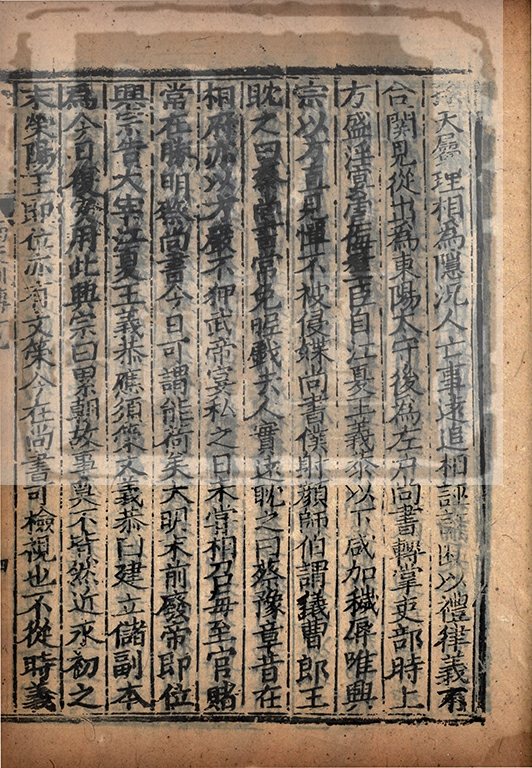 天屬理相為隱況人亡事遠追相誣訐斷以禮律義不
合關見從出為東陽太守後為左戶尚書轉掌吏部時上
方盛淫宴虐侮羣臣自江夏王義恭以下咸加穢辱唯興
宗以方直見憚不被侵媟尚書僕射顔師伯謂議曹郎王
耽之曰蔡尚書常免昵戲去人實遠耽之曰蔡豫章昔在
相府亦以方嚴不狎武帝宴私之日未嘗相召每至官賭
常在勝朋蔡尚書今日可謂能荷矣大明末前廢帝即位
興宗告太宰江夏王義恭應須策文義恭曰建立儲副本
為今日復安用此興宗曰累朝故事莫不皆然近永初之
末滎陽王即位亦有文策今在尚書可檢視也不從時義